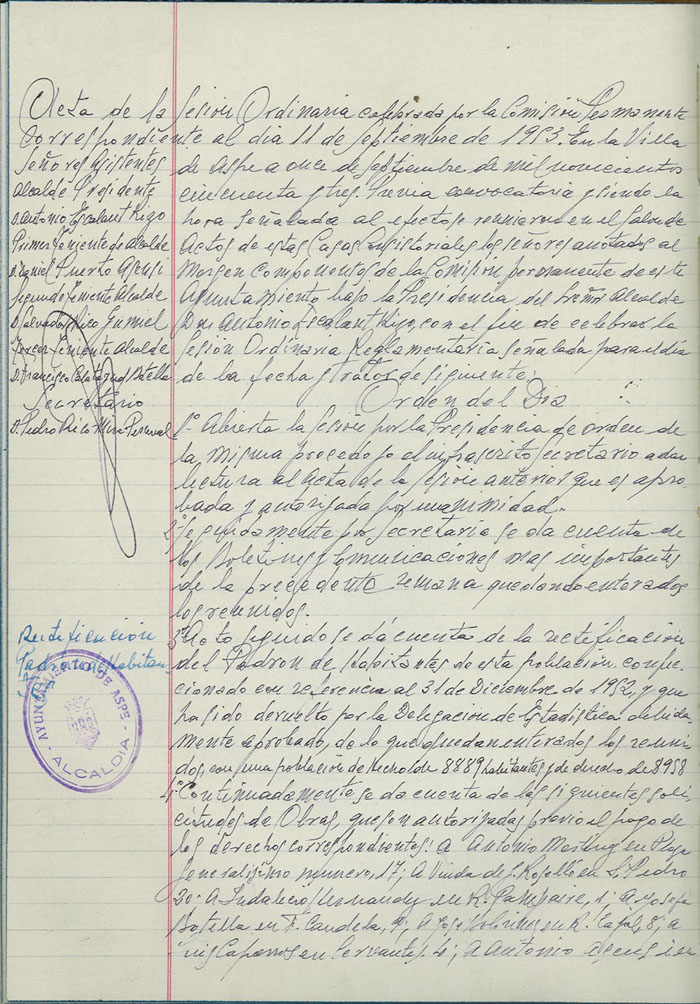 Acta de la Sesion Ordinaria celebrada por la Comisión Permanente
correspondiente al dia 11 de septiembre de 1953. En la Villa
de Aspe a once de septiembre de mil novecientos
cincuenta y tres. Previa convocatoria y siendo la
hora señalada al efecto se reunieron en el Salon de
Actos de estas Casas Consistoriales los señores anotados al
Margen componentes de la Comisión permanente de este
Ayuntamiento bajo la Presidencia del Señor Alcalde
Don Antonio Escalant Rizo, con el fin de celebrar la
Sesión Ordinaria Reglamentaria señalada para el dia
de la fecha y tratar de siguiente:
Orden del Dia
Señores asistentes
Alcalde Presidente
D. Antonio Escalant Rizo
Primer Teniente de Alcalde
D. Daniel Puerto Asensi
Segundo Teniente Alcalde
D. Salvador Rico Gumiel
Tercer Teniente Alcalde
D. Francisco Calatayud Botella
Secretario
D. Pedro Rico Mira Perceval
1º Abierta la Sesion por la Presidencia de orden de
la misma procedo yo el infrascrito Secretario a dar
lectura al Acta de la Sesión anterior que es apro-
bada y autorizada por unanimidad.
2º Seguidamente por secretaria se da cuenta de
los Boletines y Comunicaciones mas importantes
de la precedente semana quedando enterados
los reunidos.
Rectificación
Padron de Habitan-
tes
AYUNTAMIENTO DE ASPE
- ALCALDIA -
3º Acto seguido se dá cuenta de la rectificacion
del Padron de Habitantes de esta población confec-
cionado con referencia al 31 de Diciembre de 1952, y que
ha sido devuelto por la Delegación de Estadistica debida
mente aprobado, de lo que quedan enterados los reuni
dos, con una población de Hecho de 8889 habitantes y de derecho de 8958
4º Continuadamente se da cuenta de las siguientes soli
citudes de Obras, que son autorizadas previo el pago de
los derechos correspondientes: A Antonio Martinez en Plaza
Generalisimo numero, 17; A Viuda de J. Roselló en S. Pedro
20; A Indalecio Hernandez en R. 1; A Josefa
Botella en F. Candela, 9; A Jose en R. 8; a
Luis Caparros en Cervantes, 4; A Antonio Asensi en